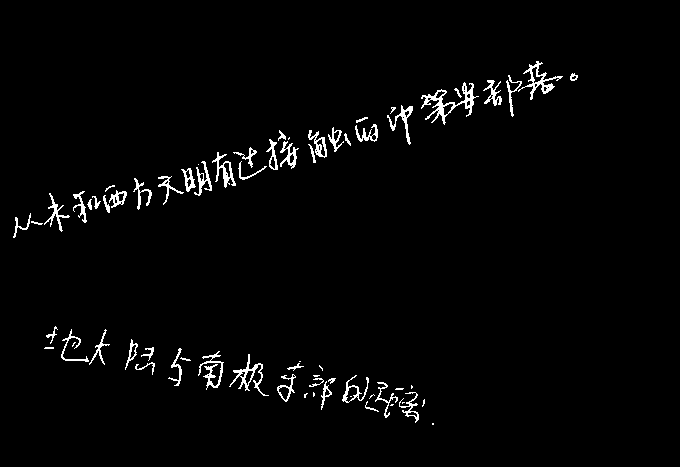 从未和西方文明有过接触的印第安部落。
地大陆与南极东部的距离.